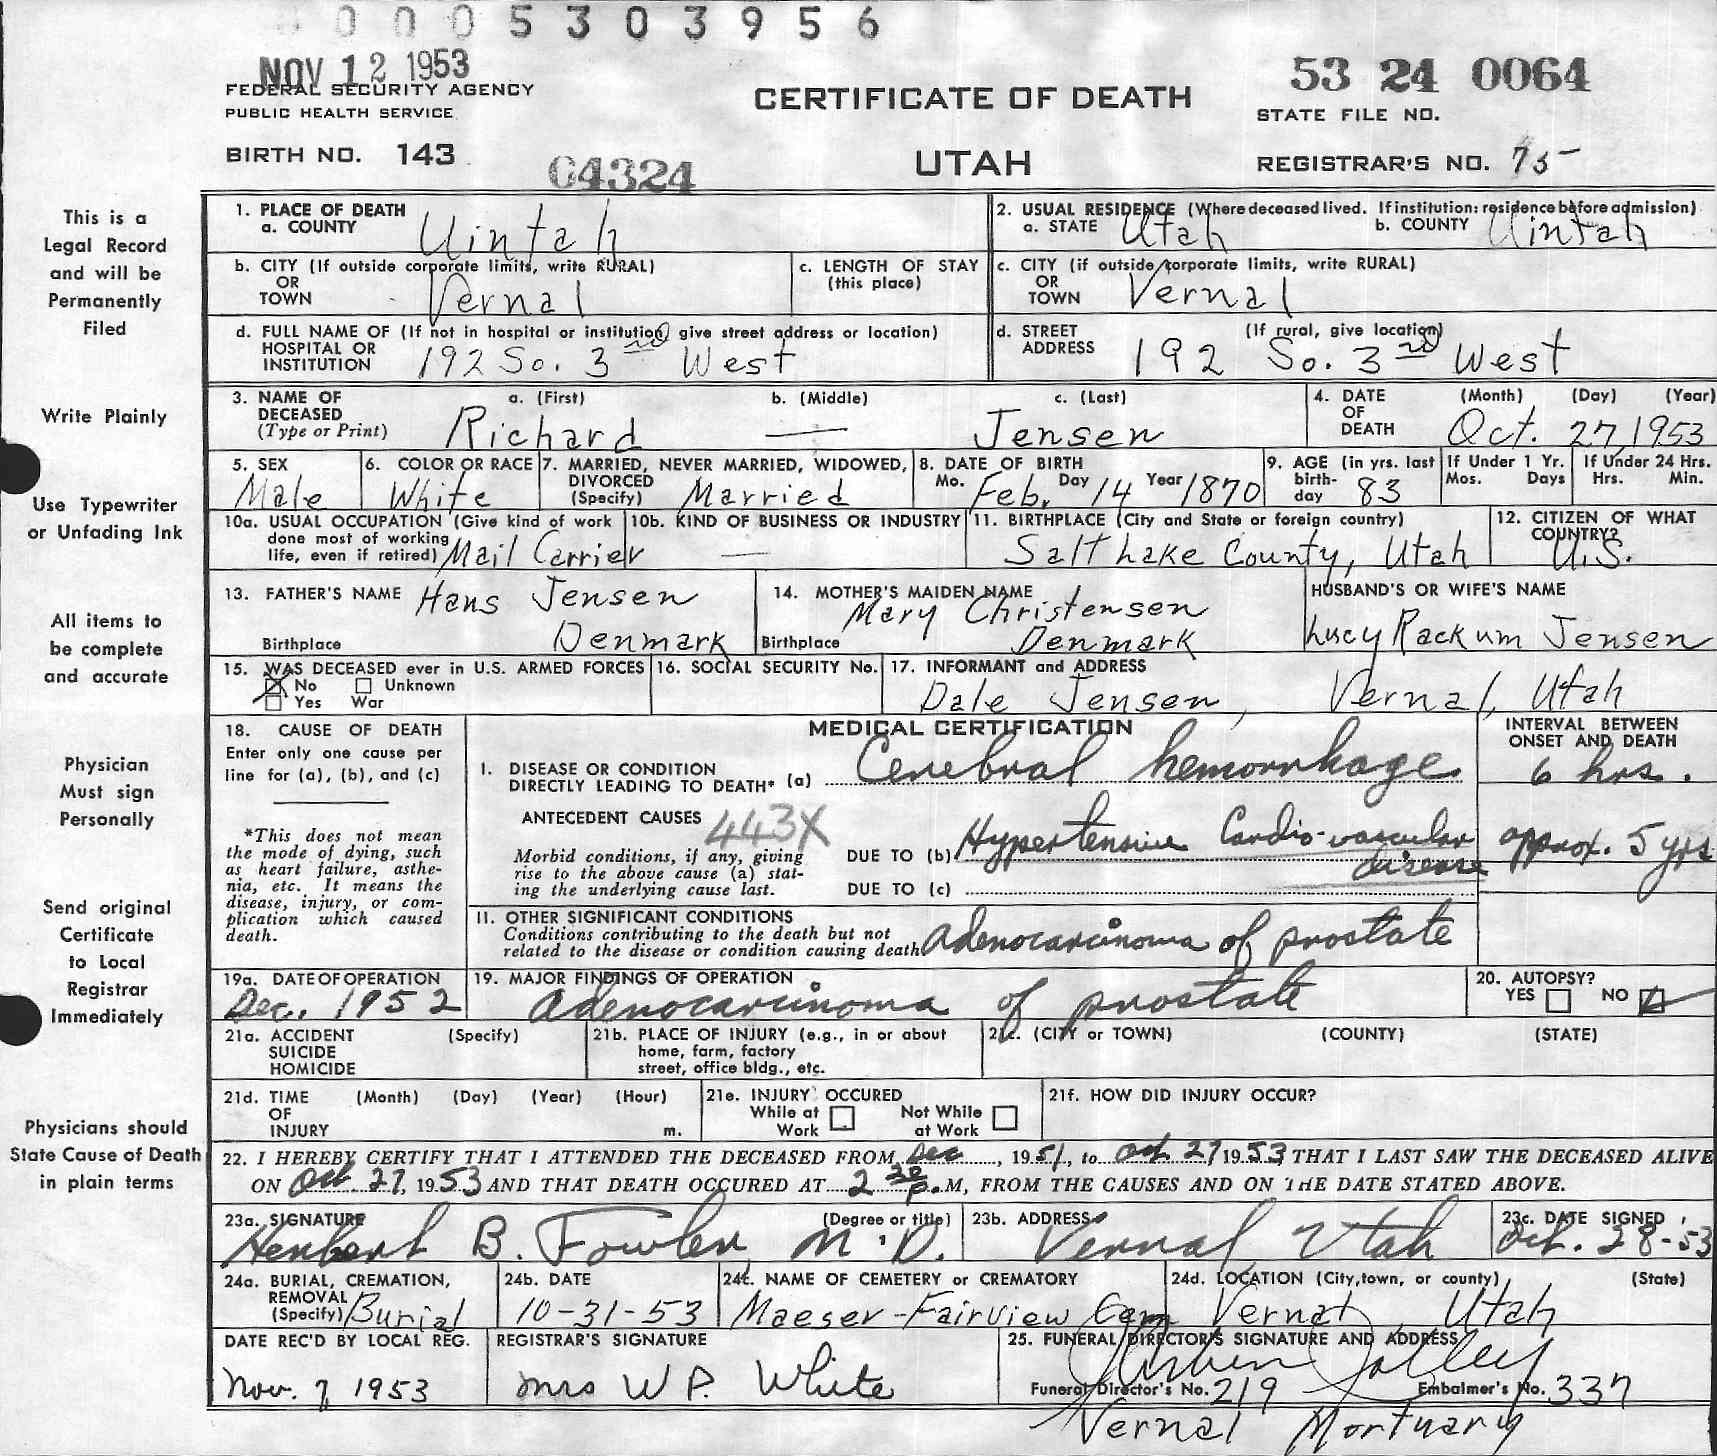 0005303956
NOV 12 1953
FEDERAL SECURITY AGENCY
PUBLIC HEALTH SERVICE
BIRTH NO. 143
64324
CERTIFICATE OF DEATH
UTAH
53 24 0064
STATE FILE NO.
REGISTRAR'S NO. 75
This is a
Legal Record
and will be
Permanently
Filed
Write Plainly
Use Typewriter
or Unfading Ink
All items to
be complete
and accurate
Physician
Must sign
Personally
Send original
Certificate
to Local
Registrar
Immediately
Physicians should
State Cause of Death
in plain terms
1. PLACE OF DEATH
a. COUNTY Uintah
2. USUAL RESIDENCE (Where deceased lived. If institution: residence before admission)
a. STATE Utah b. COUNTY Uintah
b. CITY (If outside corporate limits, write RURAL)
OR
TOWN Vernal
c. LENGTH OF STAY
(this place)
c. CITY (if outside corporate limits, write RURAL)
OR
TOWN Vernal
d. FULL NAME OF (If not in hospital or institution, give street address or location)
HOSPITAL OR
INSTITUTION 192 So. 3rd West
d. STREET (If rural, give location)
ADDRESS 192 So. 3rd West
3. NAME OF a. (First) b. (Middle) c. (Last)
DECEASED
(Type or Print) Richard — Jensen
4. DATE (Month) (Day) (Year)
OF
DEATH Oct. 27, 1953
5. SEX
Male
6. COLOR OR RACE
White
7. MARRIED, NEVER MARRIED, WIDOWED,
DIVORCED
(Specify) Married
8. DATE OF BIRTH
Mo. Feb. Day 14 Year 1870
9. AGE (in yrs. last
birth-
day 83
If Under 1 Yr.
Mos. Days
If Under 24 Hrs.
Hrs. Min.
10a. USUAL OCCUPATION (Give kind of work
done most of working
life, even if retired) Mail Carrier
10b. KIND OF BUSINESS OR INDUSTRY
—
11. BIRTHPLACE (City and State or foreign country)
Salt Lake County, Utah
12. CITIZEN OF WHAT
COUNTRY?
U.S.
13. FATHER'S NAME Hans Jensen
Birthplace Denmark
14. MOTHER'S MAIDEN NAME
Mary Christensen
Birthplace Denmark
HUSBAND'S OR WIFE'S NAME
Lucy Rackum Jensen
15. WAS DECEASED ever in U.S. ARMED FORCES
No Unknown
Yes War
16. SOCIAL SECURITY No.
17. INFORMANT and ADDRESS
Dale Jensen, Vernal, Utah
18. CAUSE OF DEATH
Enter only one cause per
line for (a), (b), and (c)
*This does not mean
the mode of dying, such
as heart failure, asthe-
nia, etc. It means the
disease, injury, or com-
plication which caused
death.
MEDICAL CERTIFICATION
INTERVAL BETWEEN
ONSET AND DEATH
I. DISEASE OR CONDITION
DIRECTLY LEADING TO DEATH* (a) Cerebral hemorrhage 6 hrs.
ANTECEDENT CAUSES 443X
Morbid conditions, if any, giving
rise to the above cause (a) stat-
ing the underlying cause last.
DUE TO (b) Hypertensive Cardio-vascular disease approx. 5 yrs
DUE TO (c)
II. OTHER SIGNIFICANT CONDITIONS
Conditions contributing to the death but not
related to the disease or condition causing death Adenocarcinoma of prostate
19a. DATE OF OPERATION
Dec. 1952
19. MAJOR FINDINGS OF OPERATION
Adenocarcinoma of prostate
20. AUTOPSY?
YES NO
21a. ACCIDENT (Specify)
SUICIDE
HOMICIDE
21b. PLACE OF INJURY (e.g., in or about
home, farm, factory
street, office bldg., etc.
21c. (CITY or TOWN) (COUNTY) (STATE)
21d. TIME (Month) (Day) (Year) (Hour)
OF
INJURY m.
21e. INJURY OCCURED
While at Work Not While at Work
21f. HOW DID INJURY OCCUR?
22. I HEREBY CERTIFY THAT I ATTENDED THE DECEASED FROM Dec, 1951, to Oct. 27, 1953, THAT I LAST SAW THE DECEASED ALIVE
ON Oct. 27, 1953 AND THAT DEATH OCCURED AT 2 30 P.M, FROM THE CAUSES AND ON THE DATE STATED ABOVE.
23a. SIGNATURE (Degree or title)
Herbert B. Fowler M.D.
23b. ADDRESS
Vernal Utah
23c. DATE SIGNED
Oct. 28-53
24a. BURIAL, CREMATION,
REMOVAL
(Specify) Burial
24b. DATE
10-31-53
24c. NAME OF CEMETERY or CREMATORY
Maeser-Fairview Cem
24d. LOCATION (City, town, or county) (State)
Vernal, Utah
DATE REC'D BY LOCAL REG.
Nov. 7, 1953
REGISTRAR'S SIGNATURE
Mrs W P. White
25. FUNERAL DIRECTOR'S SIGNATURE AND ADDRESS
Jolley
Funeral Director's No. 219 Embalmer's No. 337
Vernal Mortuary